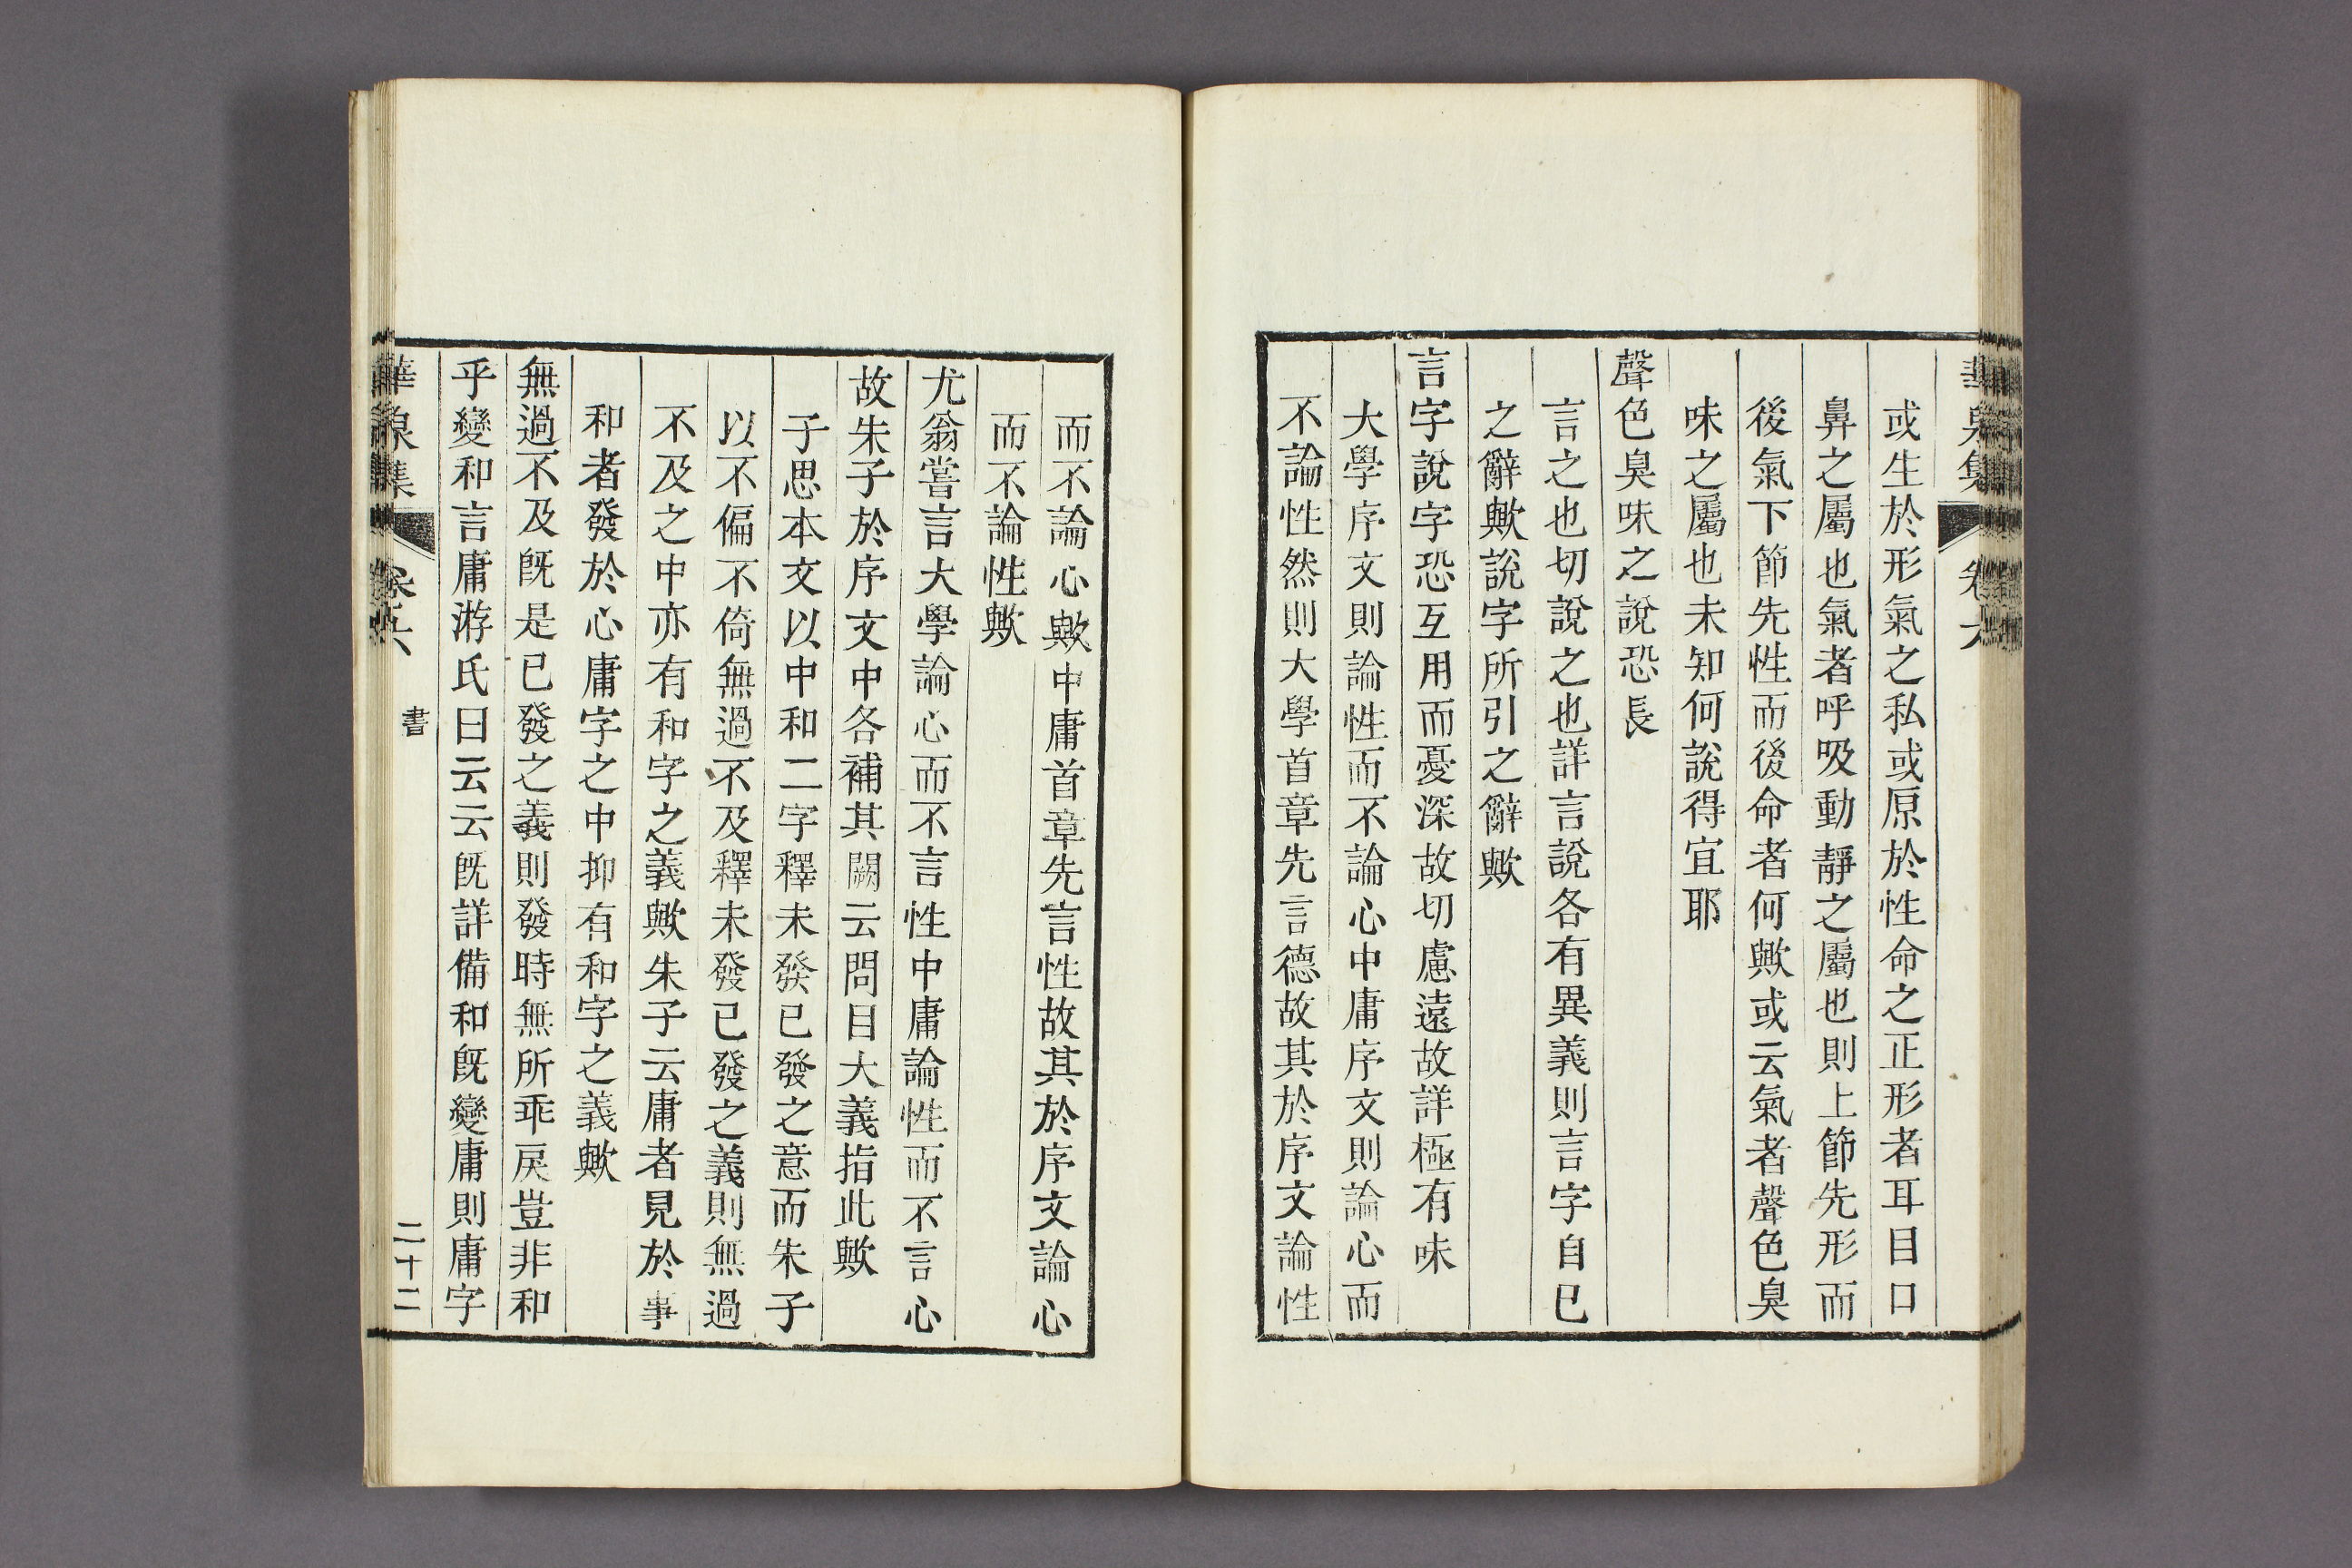 華泉集 卷六
或生於形氣之私或原於性命之正形者耳目口
鼻之屬也氣者呼吸動靜之屬也則上節先形而
後氣下節先性而後命者何歟或云氣者聲色臭
味之屬也未知何說得宜耶
聲色臭味之說恐長
言之也切說之也詳言說各有異義則言字自已
之辭歟說字所引之辭歟
言字說字恐互用而憂深故切慮遠故詳極有味
大學序文則論性而不論心中庸序文則論心而
不論性然則大學首章先言德故其於序文論性
而不論心歟中庸首章先言性故其於序文論心
而不論性歟
尤翁嘗言大學論心而不言性中庸論性而不言心
故朱子於序文中各補其闕云問目大義指此歟
子思本文以中和二字釋未發已發之意而朱子
以不偏不倚無過不及釋未發已發之義則無過
不及之中亦有和字之義歟朱子云庸者見於事
和者發於心庸字之中抑有和字之義歟
無過不及旣是已發之義則發時無所乖戾豈非和
乎變和言庸游氏曰云云旣詳備和旣變庸則庸字
華泉集 卷六 書 二十二